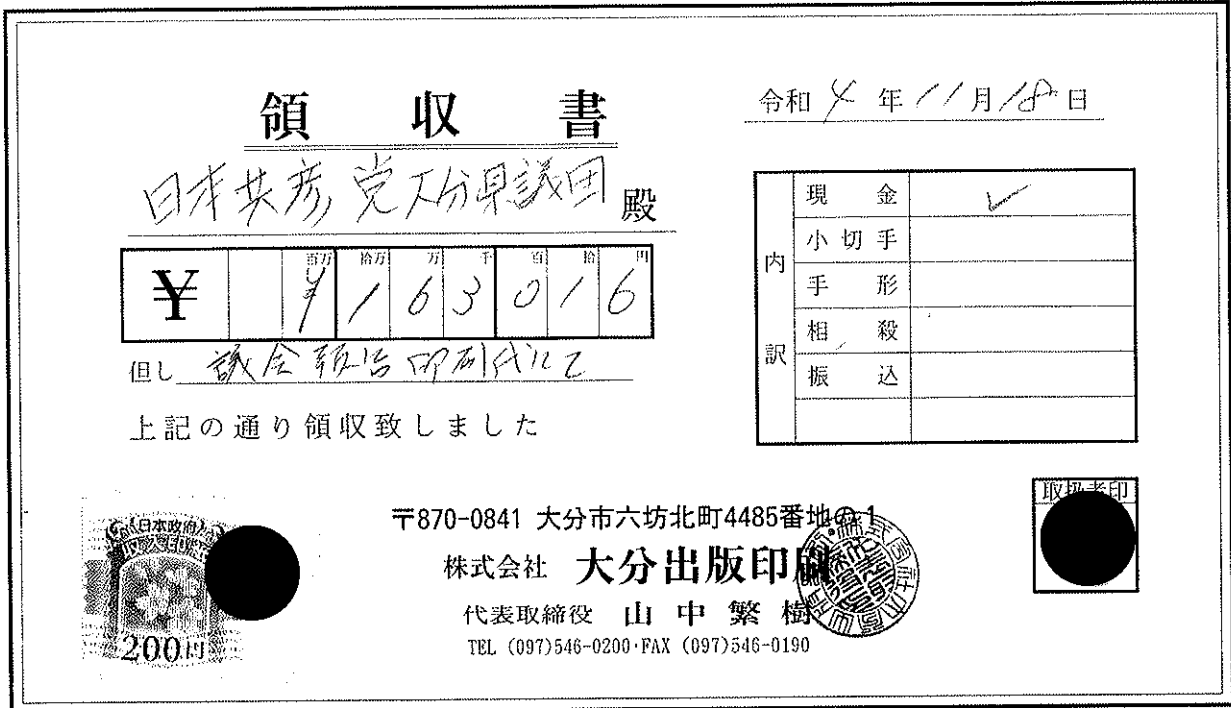 領収書
令和4年11月18日
日本共産党大分県議団 殿
¥ 百万 拾万 万 千 百 拾 円
¥163016
但し 議会報告印刷代にて
上記の通り領収致しました
内訳
現金 ✓
小切手
手形
相殺
振込
取扱者印
日本政府
収入印紙
200円
〒870-0841 大分市六坊北町4485番地の1
株式会社 大分出版印刷
代表取締役 山中繁樹
TEL (097)546-0200・FAX (097)546-0190